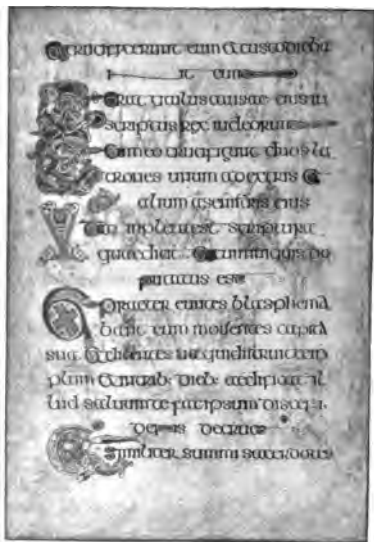 eum & custodieba
nt eum
Erat titulus causae eius in
scriptus rex iudeorum
Et cum eo crucifigunt duos la
trones unum a dextris &
alium a sinistris eius
impleta est scriptura
quae dicit Et cum iniquis re
putatus est
Et praetereuntes blasphema
bant eum mouentes capita
sua & dicentes ua qui distruit tem
plum & in trib: dieb: aedificat il
lud saluum te fac ipsum discen
dens de cruce
Similiter summi sacerdotes